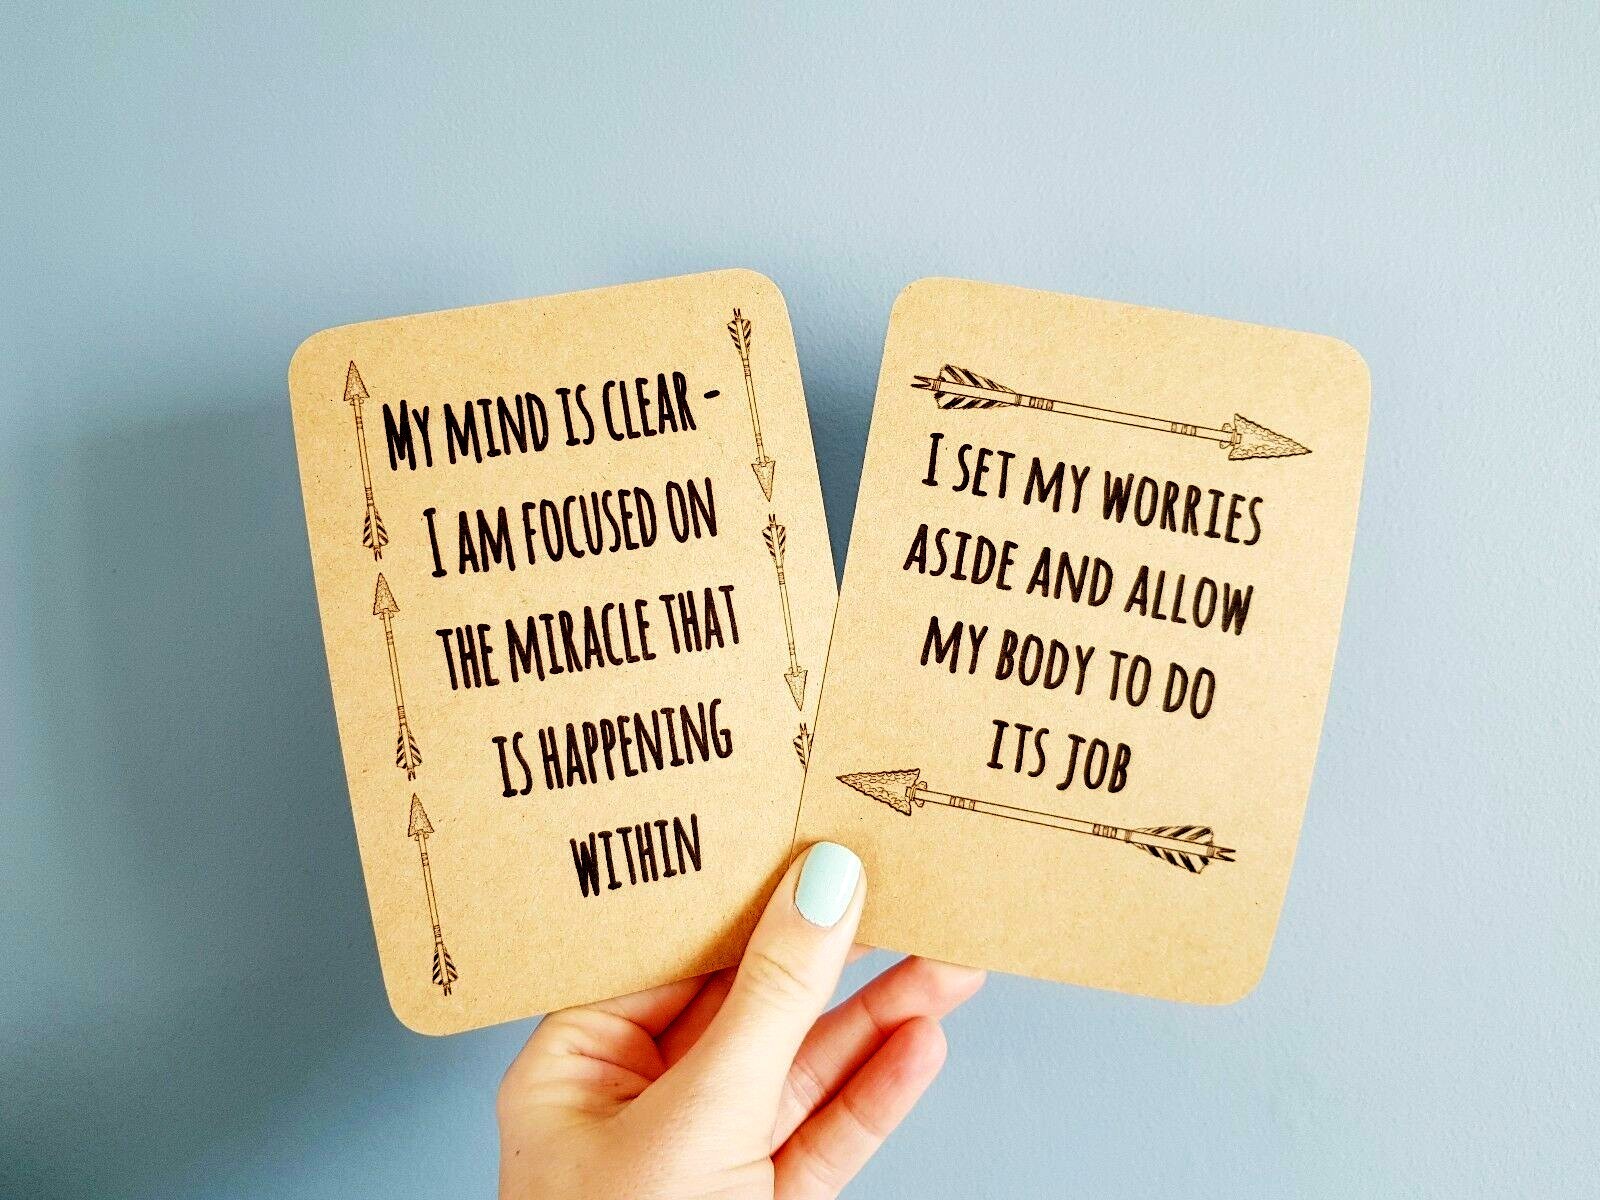 My mind is clear -
I am focused on
the miracle that
is happening
within
I set my worries
aside and allow
my body to do
its job